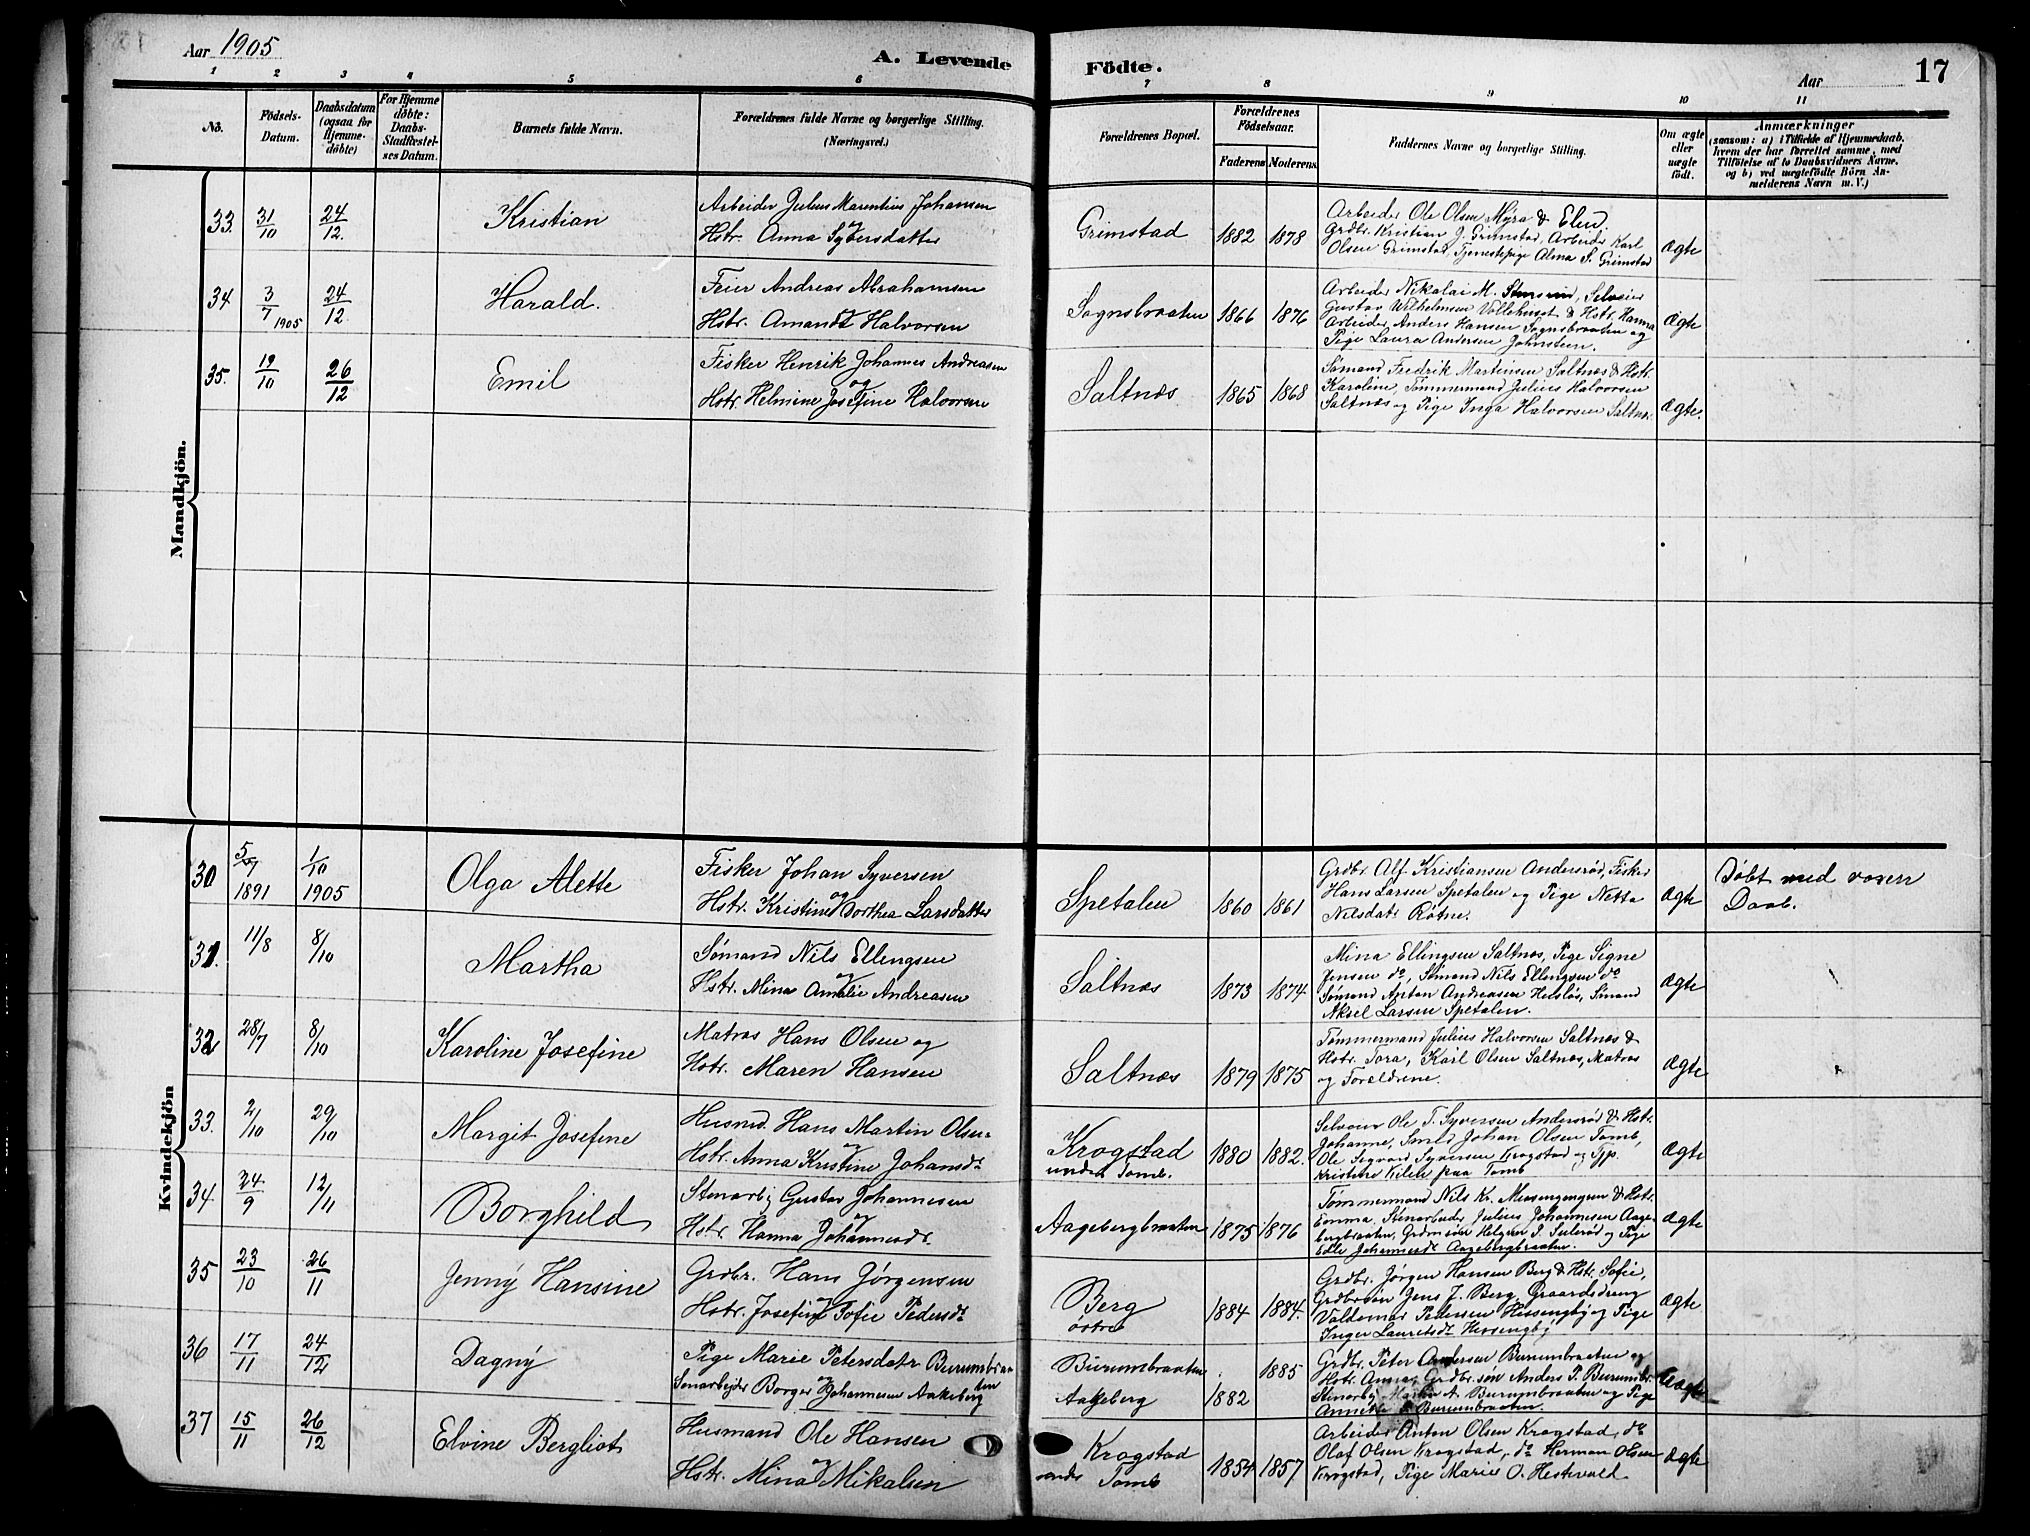 Aar 1905
A. Levende Födte.
Aar
17
1 2 3 4 5 6 7 8 9 10 11
No.
Födsels-Datum.
Daabsdatum (ogsaa for Hjemme-döbte)
For Hjemme döbte: Daabs-Stadfæstel-ses Datum.
Barnets fulde Navn.
Forældrenes fulde Navne og borgerlige Stilling. (Næringsvei.)
Forældrenes Bopæl.
Forældrenes Födselsaar.
Faderens Moderens
Faddernes Navne og borgerlige Stilling.
Om ægte eller uægte födt.
Anmærkninger
(saasom: a) i Tilfælde af Hjemmedaab, hvem der har forrettet samme, med Tilföielse af to Daabsvidners Navne, og b) ved uægtefödte Börn An-melderens Navn m. V.)
Mandkjön.
33. 31/10 24/12. Kristian
Arbeider Julius Marentius Johansen
og
Hstr. Anna Syversdatter
Grimstad 1882 1878
Arbeider Ole Olsen Myra &
Grdbr. Kristian J. Grimstad, Arbeider Karl
Olsen Grimstad, Tjenestepige Alma S. Grimstad
Ægte
34 3/7 1905 24/12. Harald.
Feier Andreas Abrahamsen
og
Hstr. Amanda Halvorsen
Sognsbraaten 1866 1876
Arbeider Nikolai M. Selveier
Gustav Wilhelmsen Vollehuset & Hstr. Hanna
Arbeider Anders Hansen Sognsbraaten og
Pige Laura Andersen Johnsteen.
Ægte
35. 19/10 26/12 Emil
Fisker Henrik Johannes Andreasen
og
Hstr. Helmine Josefine Halvorsen
Saltnæs 1865 1868
Sømand Fredrik Martinsen Saltnæs & Hstr.
Karoline, Tømmermand Julius Halvorsen
Saltnæs og Pige Inga Halvorsen Saltnæs.
Ægte.
Kvindekjön
30 5/7 1891 1/10 1905 Olga Alette
Fisker Johan Syversen
og
Hstr. Kristine Dorthea Larsdatter
Spetalen 1860 1861
Grdbr. Alf Kristiansen Andersrød, Fisker
Hans Larsen Spetalen og Pige Netta
Nilsdatr Rötne.
Ægte
Døbt med voxen
Daab.
31. 11/8 8/10 Martha
Sømand Nils Ellingsen
og
Hstr. Mina Amalie Andreasen
Saltnæs 1873 1874
Mina Ellingsen Saltnæs, Pige Signe
Jensen do, Sømand Nils Ellingsen do
Sømand Anton Andreasen Sømand
Aksel Larsen Spetalen.
Ægte
32 28/7 8/10 Karoline Josefine
Matros Hans Olsen og
Hstr. Maren Hansen
Saltnæs 1879 1875
Tømmermand Julius Halvorsen Saltnæs &
Hstr. Tora, Karl Olsen Saltnæs, Matros
og Forældrene.
Ægte
33. 2/10 29/10 Margit Josefine
Husmd. Hans Martin Olsen
og
Hstr. Anna Kristine Johansdr
Krogstad
under Tomb. 1880 1882.
Selveier Ole T. Syversen Andersrød & Hstr.
Johanne, Smed Johan Olsen Tomb,
Ole Sigvard Syversen Krogstad og Tjp.
Kristine Kilen paa Tomb
Ægte
34. 24/9 12/11 Borghild
Stenarb. Gustav Johannesen
og
Hstr. Hanna Johannesdr.
Aagebergbraaten 1875 1876
Tømmermand Nils Kr. & Hstr.
Emma, Stenarbeider Julius Johannesen Aage-
bergbraaten, Helgesen J. og Pige
Johannesdr Aagebergbraaten.
Ægte
35 23/10 26/11 Jenny Hansine
Grdbr. Hans Jørgensen
og
Hstr. Josefine Sofie Pedersdr
Berg
østre 1884 1884.
Grdbr. Jørgen Hansen Berg & Hstr. Sofie,
Grdbrsøn Jens J. Berg, Gaardsdreng
Valdemar Pedersen Hessengby og Pige
Inger Lauretsdr Hessengby
Ægte
36 17/11 24/12 Dagny
Pige Marie Petersdatr Burumbraa-
ten
og
Stenarbejder Borger Johannesen Aakeberg
Burumbraaten 1885
Aageberg 1882
Grdbr. Peter Andersen Burumbraaten og
Hstr. Anna, Grdbr.søn Anders P. Burumbr.
Stenarb. Martin A. Burumbraaten og Pige
Annette P. Burumbraaten.
Uægte
37 15/11 26/12 Elvine Bergliot
Husmand Ole Hansen
og
Hstr. Mina Mikalsen
Krogstad
under Tomb 1854 1857
Arbeider Anton Olsen Krogstad, do
Olaf Olsen Krogstad, do Herman Olsen
Krogstad, Pige Marie O. Hestvold
Ægte